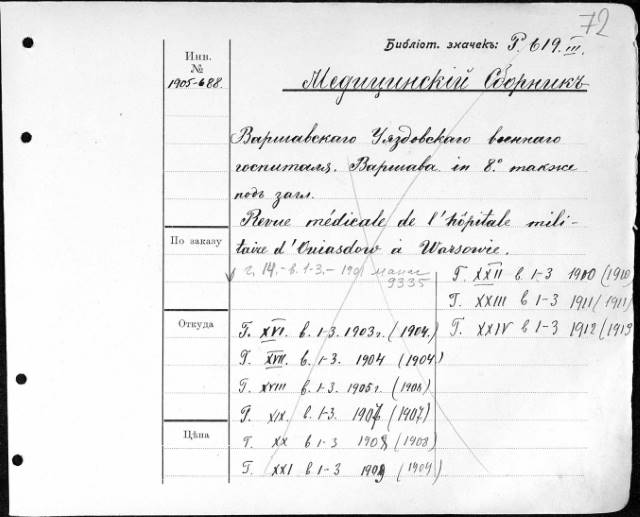 72
Библіот. значекъ: Р. 619. III.
Инв.
№
1905-688.
Медицинскій Сборникъ
Варшавскаго Уяздовскаго военнаго
госпиталя. Варшава in 8.° также
подъ загл.
Revue médicale de l'hôpitale mili-
taire d'Ouiasdow à Warsowie.
По заказу
г. 14.- в. 1-3. - 190
9335
Г. XXII в. 1-3 1910 (1910
Г. XXIII в 1-3 1911 (1911)
Г. XXIV в 1-3 1912 (1913
Откуда
Г. XVI. в. 1-3. 1903 г. (1904.)
Г. XVII. в. 1-3. 1904 (1904)
Г. XVIII в. 1-3. 1905 г. (1905)
Г. XIX. в. 1-3. 1907 (1907)
Цѣна
Г. XX в 1-3 1908 (1908)
Г. XXI в 1-3 1909 (1909)